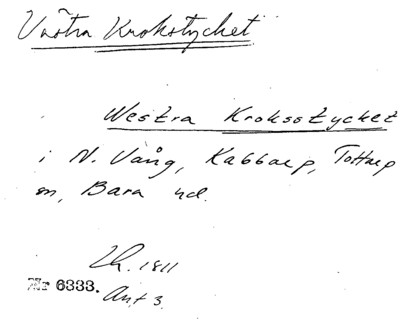 Västra Krokstycket
Westra Kroksstycket
i N. Vång, Kabbarp, Tottarp
sn, Bara hd.
Lh. 1811
Nr 6333.
Akt 3.